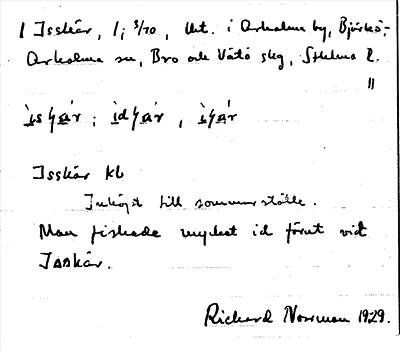 Isskär, 1; 3/70, ut. i Arholma by, Björkö-
Arholma sn, Bro och Vätö slg, Sthlms l.
"
Isskär kb
Inköpt till sommarställe.
Man fiskade mycket id förut vid
Isskär.
Richard Norrman 1929.